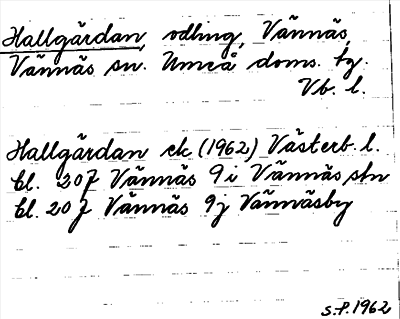 Hallgärdan, odling, Vännäs,
Vännäs sn. Umeå doms. tg.
Vb. l.
Hallgärdan ek. (1962) Västerb. l.
bl. 20J Vännäs 9 i Vännäs stn
bl. 20J Vännäs 9j Vännäsby
S.P. 1962